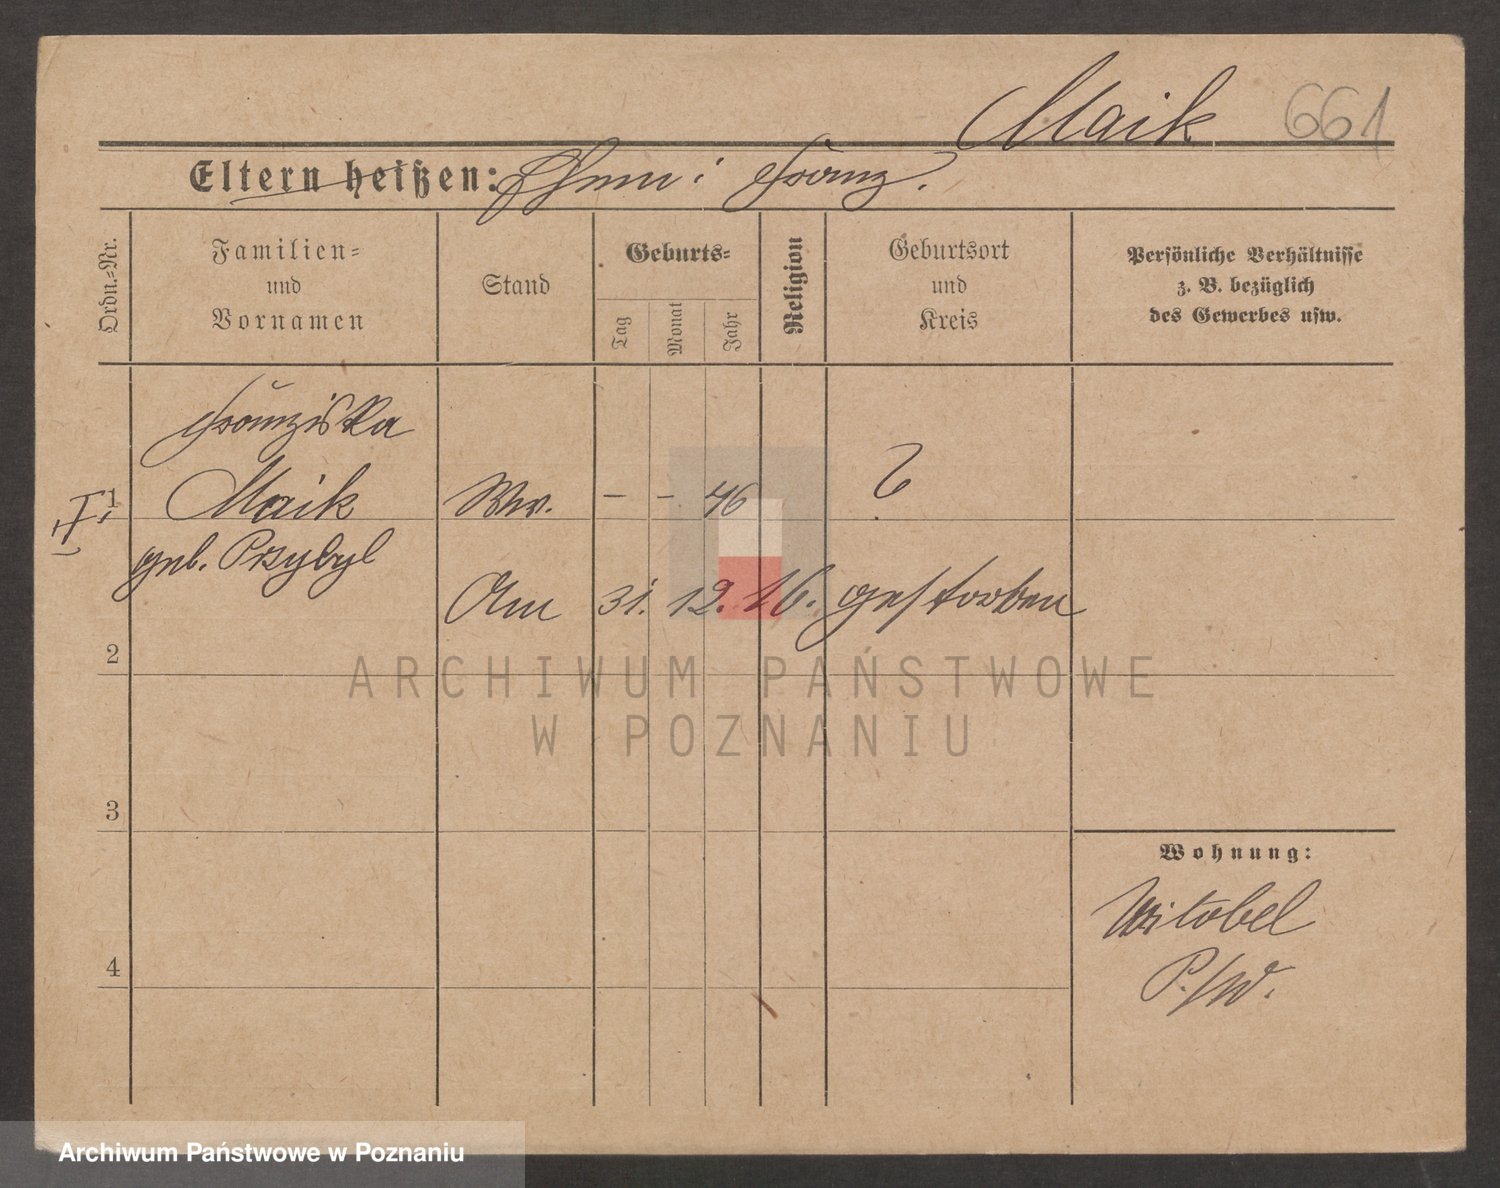 Maik 661
Eltern heißen: Ehem: Franz.
Ordn.-Nr.
Familien-
und
Vornamen
Stand
Geburts-
Tag
Monat
Jahr
Religion
Geburtsort
und
Kreis
Persönliche Verhältnisse
z. B. bezüglich
des Gewerbes usw.
Franziska
1 Maik Ww. – – 46 ?
geb. Przybyl
Am 31. 12. 16. gestorben
2
ARCHIWUM PAŃSTWOWE
W POZNANIU
3
4
Wohnung:
Witobel
P./W.
Archiwum Państwowe w Poznaniu